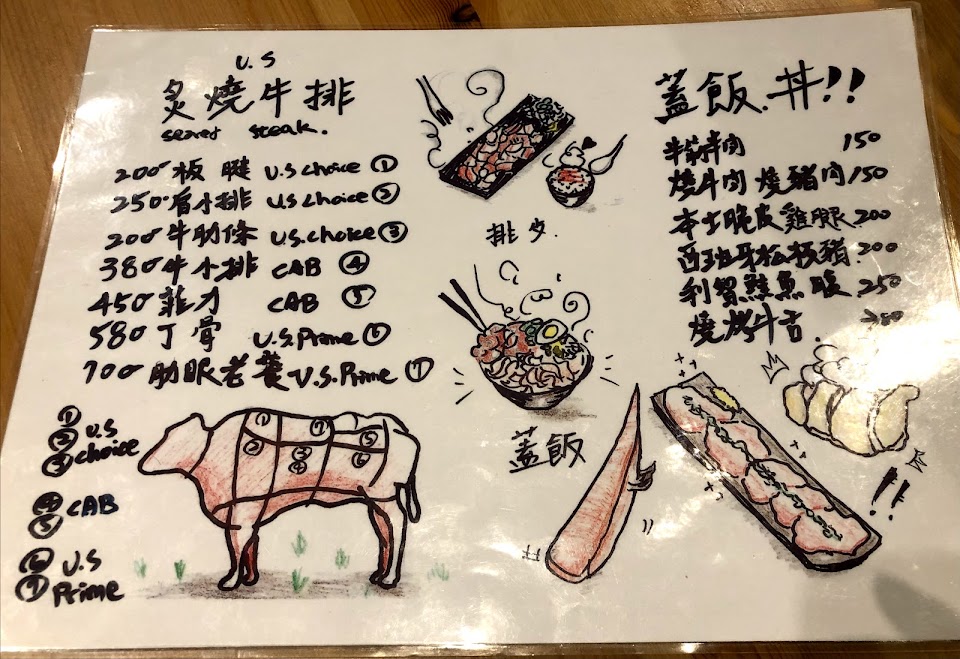 U.S
炙燒牛排
seared steak.
200 板腱 U.S choice ①
250 肩小排 U.S choice ②
200 牛肋條 U.S. choice ③
380 牛小排 CAB ④
450 菲力 CAB ⑤
580 丁骨 U.S. Prime ⑥
700 肋眼老饕 U.S. Prime ⑦
排
蓋飯
蓋飯.丼!!
牛肉 150
燒牛肉 燒豬肉 150
本土脆皮雞腿 200
西班牙松板豬 200
利智鮭魚腹 250
燒烤牛舌
① ⑦ ⑤
② ③ ④ ⑥
① ② ③ U.S choice
④ ⑤ CAB
⑥ ⑦ U.S Prime
!!